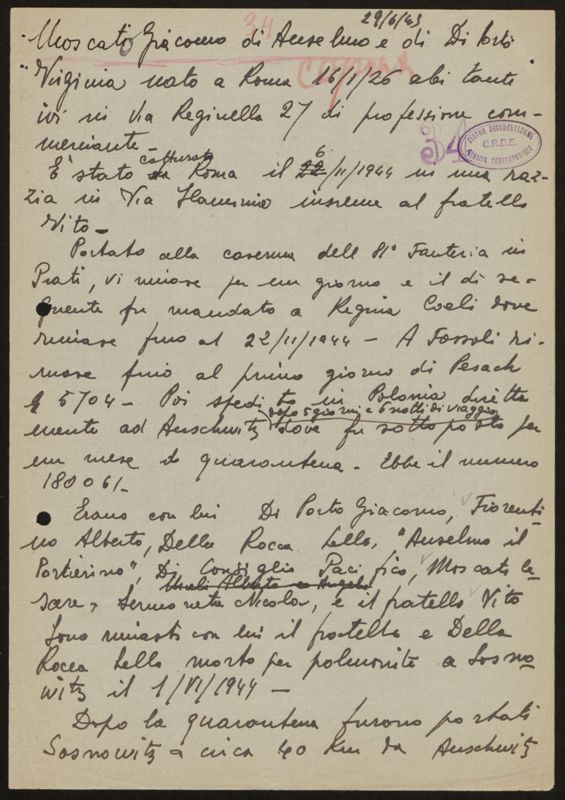 29/6/45
34
Moscato Giacomo di Anselmo e di Di Porto
Virginia nato a Roma 16/1/26 abitante
ivi in Via Reginella 27 di professione com-
merciante -
34
CENTRO DOCUMENTAZIONE
C.R.D.E.
EBRAICA CONTEMPORANEA
catturato
È stato a Roma il 6/II/1944 in una raz-
zia in Via Flaminio insieme al fratello
Vito -
Portato alla caserma dell 81° Fanteria in
Prati, vi rimase per un giorno e il dì se-
guente fu mandato a Regina Coeli dove
rimase fino al 22/II/1944 - A Fossoli ri-
mase fino al primo giorno di Pesach
5704 - Poi spedito in Polonia diretta
dopo 5 giorni e 5 notti di viaggio
mente ad Auschwitz dove fu sottoposto per
un mese a quarantena. Ebbe il numero
180061 -
Erano con lui Di Porto Giacomo, Fiorenti-
no Alberto, Della Rocca Lello, "Anselmo il
Portierino", Di Consiglio Pacifico, Moscati Ce-
sare, Sermoneta Nicola, e il fratello Vito
Sono rimasti con lui il fratello e Della
Rocca Lello morto per polmonite a Sosno-
witz il 1/VI/1944 -
Dopo la quarantena furono portati
Sosnowitz a circa 40 Km da Auschwitz